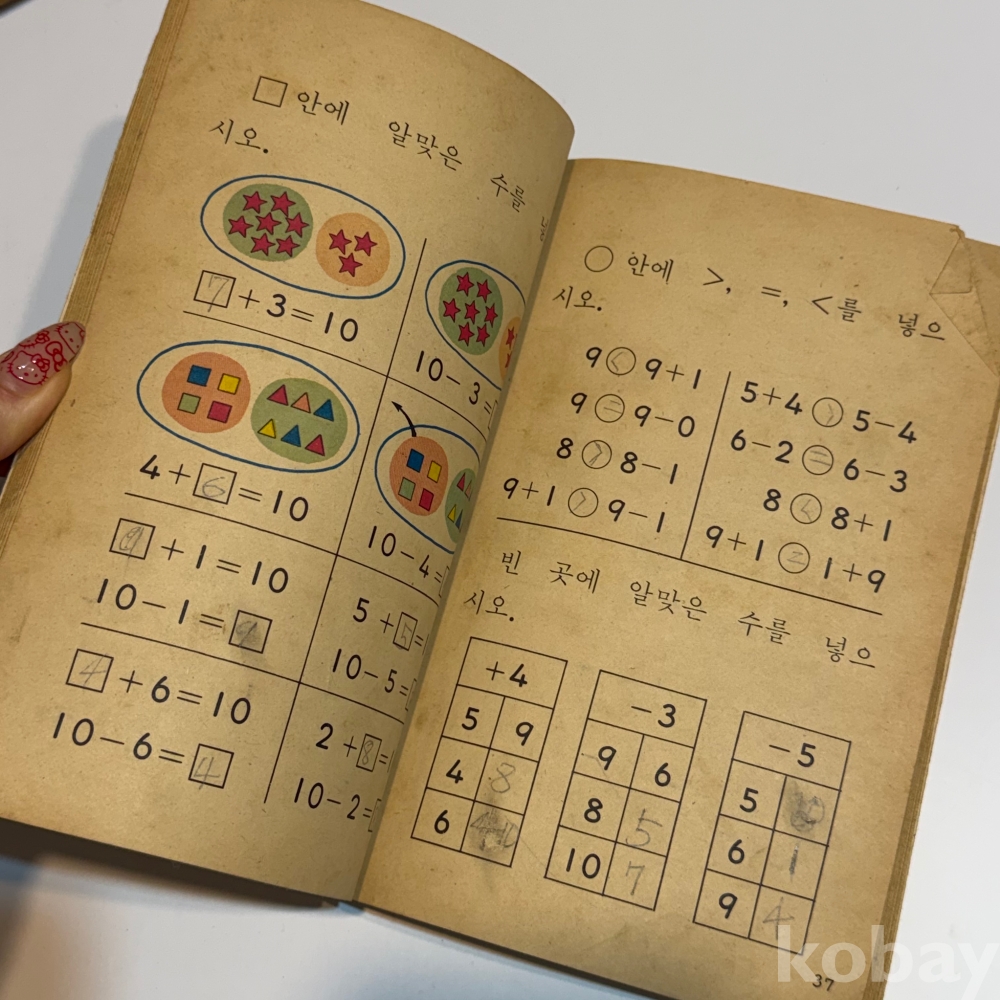 □ 안에 알맞은 수를
시오.
7+3=10
10-3=
4+6=10
10-4=
9+1=10
10-1=9
5+5=
10-5=
4+6=10
10-6=4
2+8=
10-2=
○ 안에 >, =, <를 넣으
시오.
9<9+1
9=9-0
8>8-1
9+1>9-1
5+4>5-4
6-2=6-3
8<8+1
9+1=1+9
빈 곳에 알맞은 수를 넣으
시오.
+4
5 9
4 8
6
-3
9 6
8 5
10 7
-5
5
6 1
9 4
37
kobay